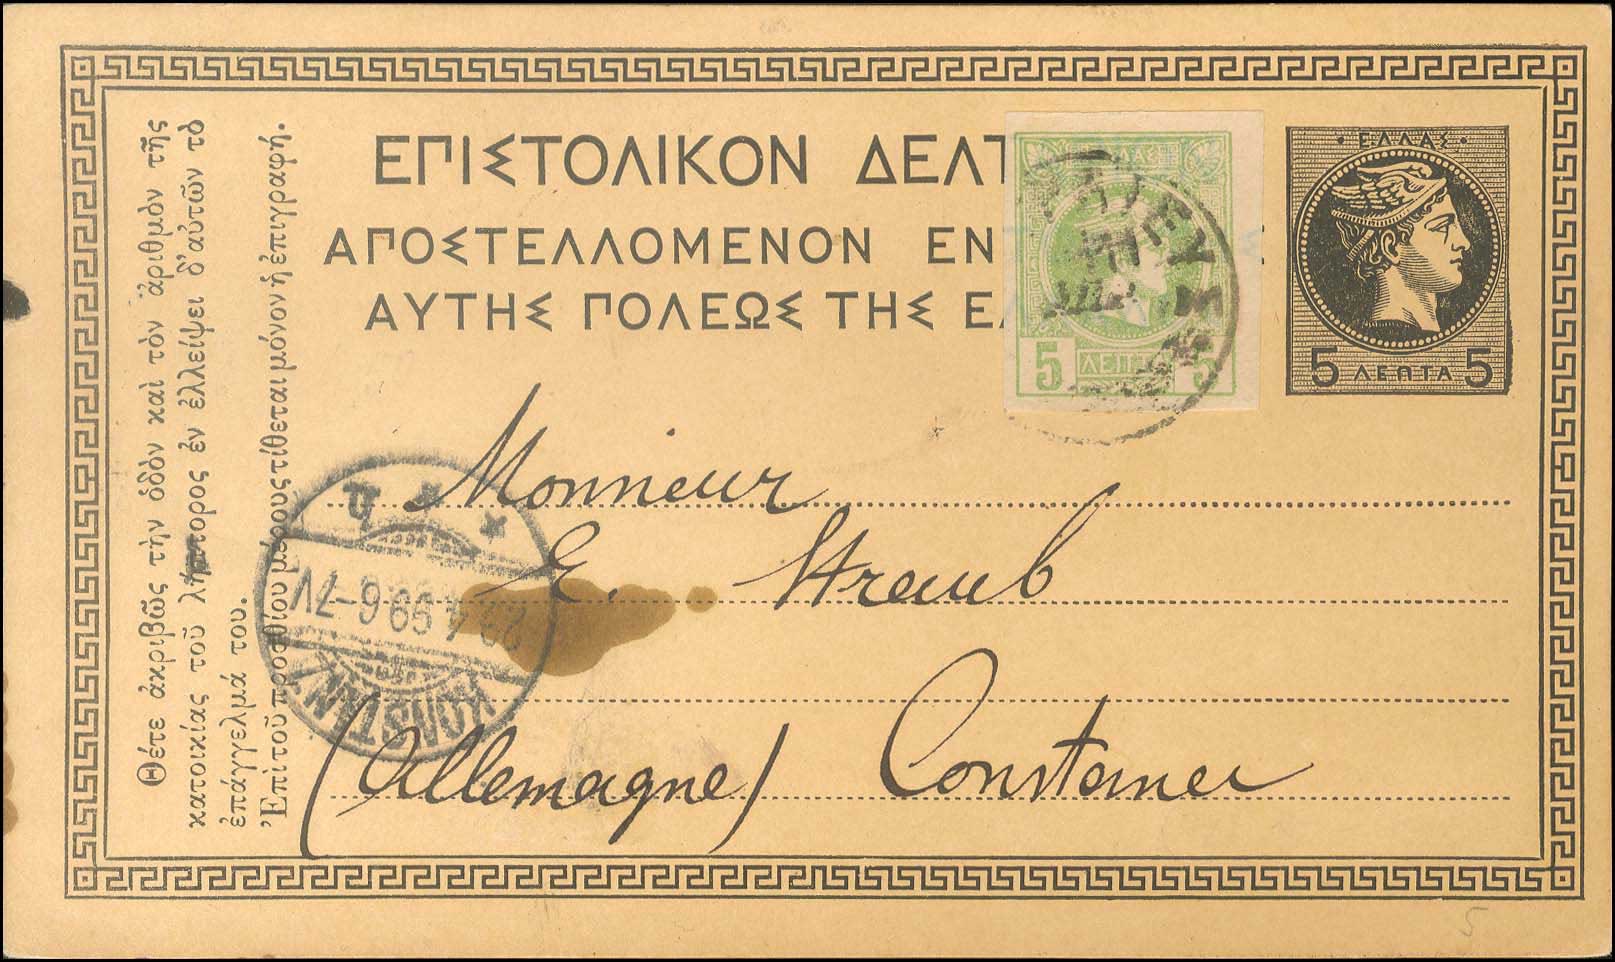 ΕΠΙΣΤΟΛΙΚΟΝ ΔΕΛΤ
ΑΠΟΣΤΕΛΛΟΜΕΝΟΝ ΕΝ
ΑΥΤΗΣ ΠΟΛΕΩΣ ΤΗΣ ΕΛ
5 ΛΕΠΤΑ 5
·ΕΛΛΑΣ·
5 ΛΕΠΤΑ 5
Θέτε ἀκριβῶς τὴν ὁδὸν καὶ τὸν ἀριθμὸν τῆς
κατοικίας τοῦ λήπτορος ἐν ἐλλείψει δ'αὐτῶν τὸ
ἐπάγγελμά του.
Ἐπὶ τοῦ προσθίου μέρους τίθεται μόνον ἡ ἐπιγραφή.
Monsieur
E. Straub
(Allemagne) Constance
KONSTANZ
23 4 99 6-7V
5